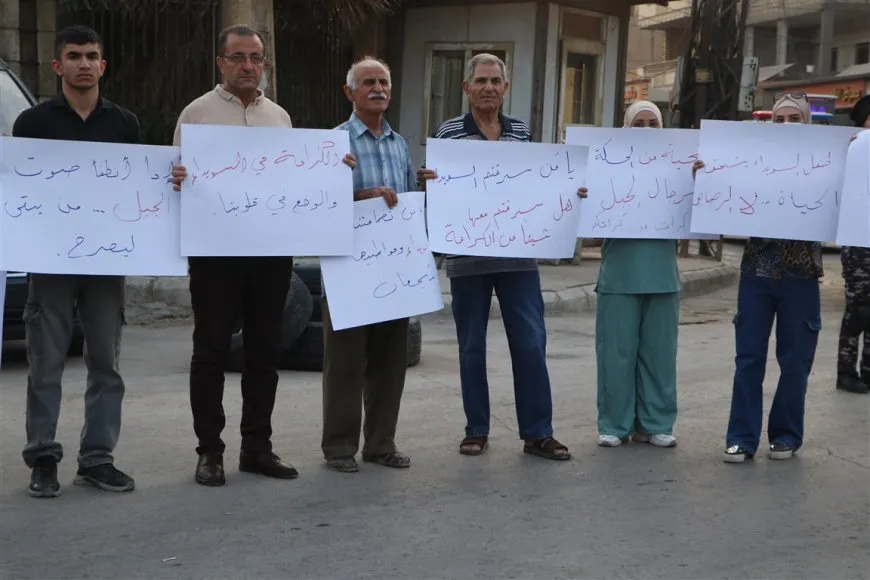 إذا أنطفأ صوت
الجبل .. من يبقى
ليصرخ.
الكرامة في السويداء
والوجع في قلوبنا.
تضامنا
الشجعان
يا من سرقتم السويداء
هل سرقتم معها
شيئاً من الكرامة
تحية من الحسكة
لرجال الجبل
طفل السويداء يستحق
الحياة .. لا الرصاص